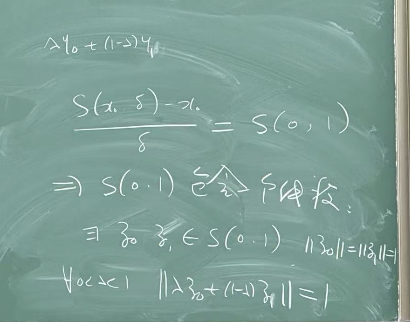 λy₀ + (1-λ)y₁
S(x₀, δ) - x₀ / δ = S(0, 1)
⇒ S(0, 1) 包含
∃ z₀ z₁ ∈ S(0, 1) ||z₀|| = ||z₁|| = 1
∀0<λ<1 ||λz₀ + (1-λ)z₁|| = 1